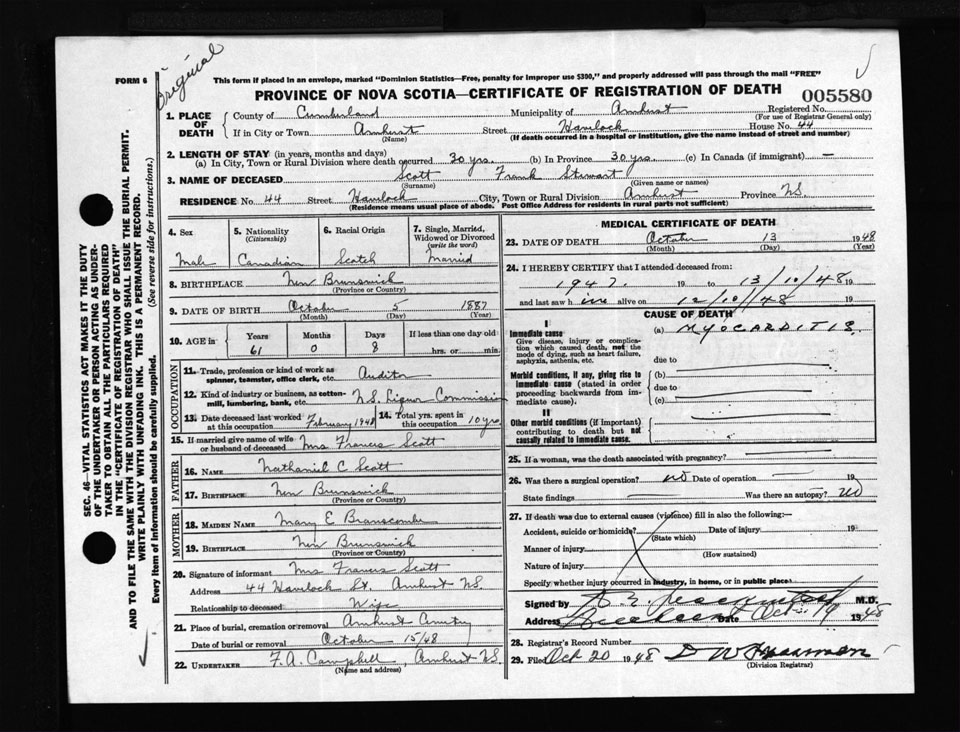 Original
FORM 6
This form if placed in an envelope, marked "Dominion Statistics—Free, penalty for improper use $300," and properly addressed will pass through the mail "FREE"
PROVINCE OF NOVA SCOTIA—CERTIFICATE OF REGISTRATION OF DEATH
005580
SEC. 46—VITAL STATISTICS ACT MAKES IT THE DUTY
OF THE UNDERTAKER OR PERSON ACTING AS UNDER-
TAKER TO OBTAIN ALL THE PARTICULARS REQUIRED
IN THE "CERTIFICATE OF REGISTRATION OF DEATH"
AND TO FILE THE SAME WITH THE DIVISION REGISTRAR WHO SHALL ISSUE THE BURIAL PERMIT.
WRITE PLAINLY WITH UNFADING INK. THIS IS A PERMANENT RECORD.
Every item of information should be carefully supplied. (See reverse side for instructions.)
1. PLACE OF DEATH
County of Cumberland Municipality of Amherst Registered No.
(For use of Registrar General only)
If in City or Town Amherst Street Havelock House No. 44
(Name) (If death occurred in a hospital or institution, give the name instead of street and number)
2. LENGTH OF STAY (in years, months and days)
(a) In City, Town or Rural Division where death occurred 30 yrs. (b) In Province 30 yrs. (c) In Canada (if immigrant) —
3. NAME OF DECEASED Scott Frank Stewart
(Surname) (Given name or names)
RESIDENCE No. 44 Street Havelock City, Town or Rural Division Amherst Province N.S.
(Residence means usual place of abode. Post Office Address for residents in rural parts not sufficient)
4. Sex
Male
5. Nationality
(Citizenship)
Canadian
6. Racial Origin
Scotch
7. Single, Married,
Widowed or Divorced
(write the word)
Married
8. BIRTHPLACE New Brunswick
(Province or Country)
9. DATE OF BIRTH October 5 1887
(Month) (Day) (Year)
10. AGE in
Years Months Days If less than one day old
61 0 8 hrs. or min.
OCCUPATION
11. Trade, profession or kind of work as
spinner, teamster, office clerk, etc. Auditor
12. Kind of industry or business, as cotten-
mill, lumbering, bank, etc. N.S. Liquor Commission
13. Date deceased last worked
at this occupation February 1948
14. Total yrs. spent in
this occupation 10 yrs.
15. If married give name of wife
or husband of deceased Mrs Frances Scott
FATHER
16. NAME Nathaniel C Scott
17. BIRTHPLACE New Brunswick
(Province or Country)
MOTHER
18. MAIDEN NAME Mary E Branscombe
19. BIRTHPLACE New Brunswick
(Province or Country)
20. Signature of informant Mrs Frances Scott
Address 44 Havelock St. Amherst N.S.
Relationship to deceased Wife
21. Place of burial, cremation or removal Amherst Cemetery
Date of burial or removal October 15/48
22. UNDERTAKER F.A. Campbell, Amherst N.S.
(Name and address)
MEDICAL CERTIFICATE OF DEATH
23. DATE OF DEATH October 13 1948
(Month) (Day) (Year)
24. I HEREBY CERTIFY that I attended deceased from:
1947. 19 to 13/10/48 19
and last saw him alive on 12/10/48 19
CAUSE OF DEATH
I
Immediate cause
Give disease, injury or complica-
tion which caused death, not the
mode of dying, such as heart failure,
asphyxia, asthenia, etc.
(a) MYOCARDITIS.
due to
Morbid conditions, if any, giving rise to
immediate cause (stated in order
proceeding backwards from im-
mediate cause).
(b)
due to
(c)
II
Other morbid conditions (if important)
contributing to death but not
causally related to immediate cause.
25. If a woman, was the death associated with pregnancy?
26. Was there a surgical operation? NO Date of operation 19
State findings Was there an autopsy? NO
27. If death was due to external causes (violence) fill in also the following:—
Accident, suicide or homicide? Date of injury 19
(State which)
Manner of injury
(How sustained)
Nature of injury
Specify whether injury occurred in industry, in home, or in public place
Signed by M.D.
Address Date Oct. 19 1948
28. Registrar's Record Number
29. Filed Oct 20 1948
(Division Registrar)